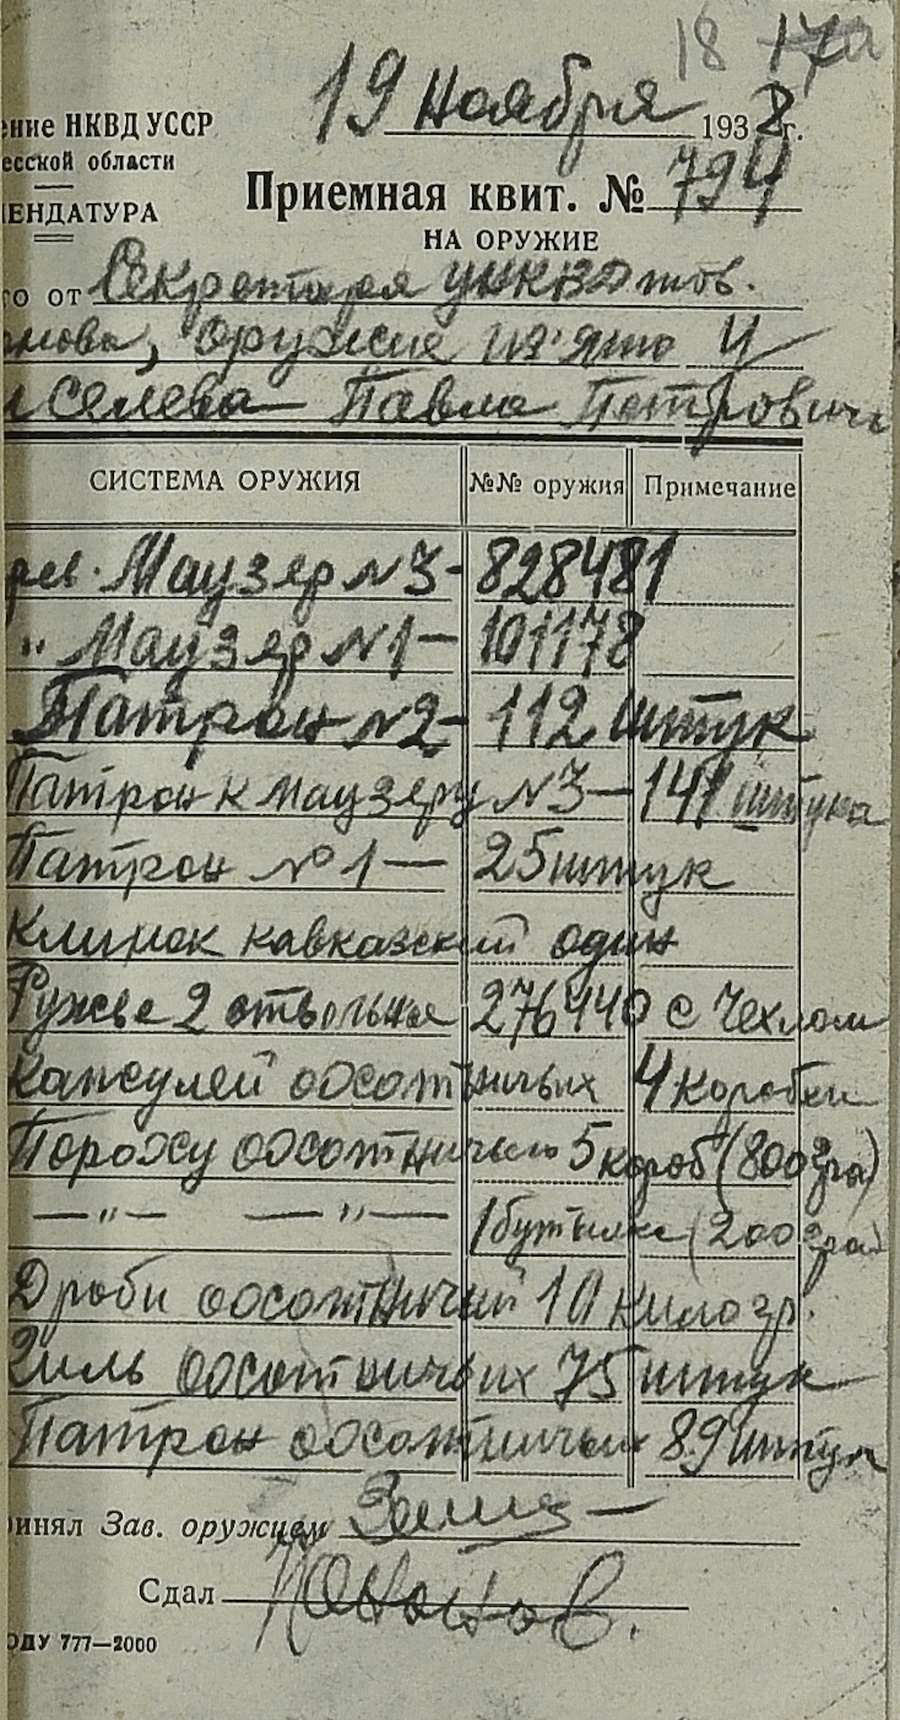 18 17а
19 ноября 1938 г.
ение НКВД УССР
есской области
ЕНДАТУРА
Приемная квит. № 794
НА ОРУЖИЕ
го от Секретаря УНКВД тов.
оружие из'ято у
иселева Павла Петровича
СИСТЕМА ОРУЖИЯ №№ оружия Примечание
рев. Маузер №3- 828481
" Маузер №1- 101178
Патрон №2- 112 штук
Патрон к маузеру №3- 141 штука
Патрон №1- 25 штук
Клинок кавказский один
Ружье 2 ствольное 276440 с чехлом
Капсулей охотничьих 4 коробки
Пороху охотничьего 5 короб (800 гра)
—"— —"— 1 бутылка (200 гра)
Дроби охотничий 10 килогр.
Гиль охотничьих 75 штук
Патрон охотничьих 89 штук
ринял Зав. оружием
Сдал
ОДУ 777—2000